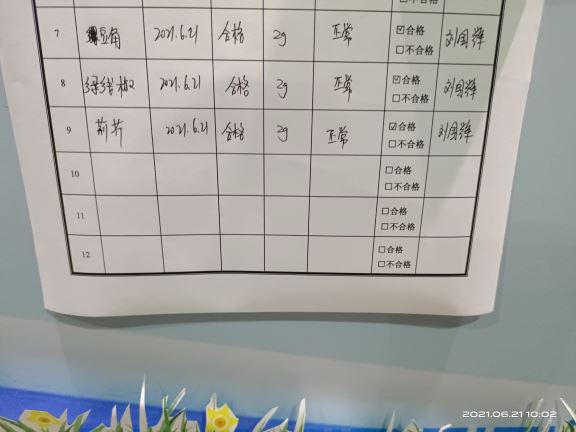 7 豆角 2021.6.21 合格 2g 正常 ☑合格
□不合格 刘国辉
8 2021.6.21 合格 2g 正常 ☑合格
□不合格 刘国辉
9 荆芥 2021.6.21 合格 2g 正常 ☑合格
□不合格 刘国辉
10 □合格
□不合格
11 □合格
□不合格
12 □合格
□不合格
2021.06.21 10:02